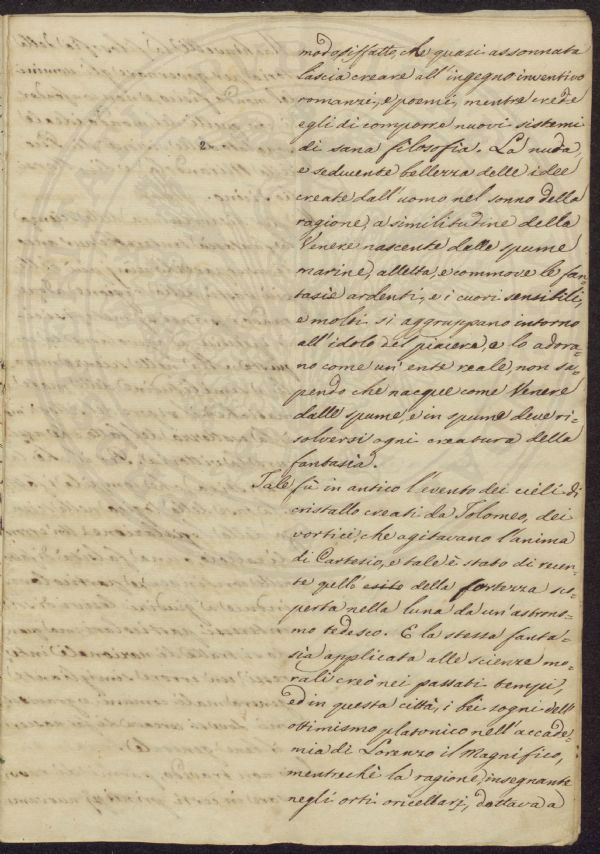 2.
modo siffatto, che quasi assonnata
lascia creare all'ingegno inventivo
romanzi, e poemi, mentre crede
egli di comporre nuovi sistemi
di sana filosofia. La nuda,
e seducente bellezza delle idee
create dall'uomo nel sonno della
ragione, a similitudine della
Venere nascente dalle spume
marine, alletta, e commove le fan-
tasie ardenti, e i cuori sensibili,
e molti si aggruppano intorno
all'idolo del piacere, e lo adora-
no come un'ente reale, non sa-
pendo che nacque come Venere
dalle spume, e in spume deve ri-
solversi ogni creatura della
fantasia.
Tale fù in antico l'evento dei cieli di
cristallo creati da Tolomeo, dei
vortici, che agitavano l'anima
di Cartesio, e tale è stato di recen-
te quello esito della fortezza sco-
perta nella luna da un'astrono-
mo tedesco. E la stessa fanta-
sia applicata alle scienze mo-
rali creò nei passati tempi,
ed in questa città, i bei sogni dell'
ottimismo platonico nell'accade-
mia di Lorenzo il Magnifico,
mentrechè la ragione, insegnante
negli orti oricellarj, dettava a